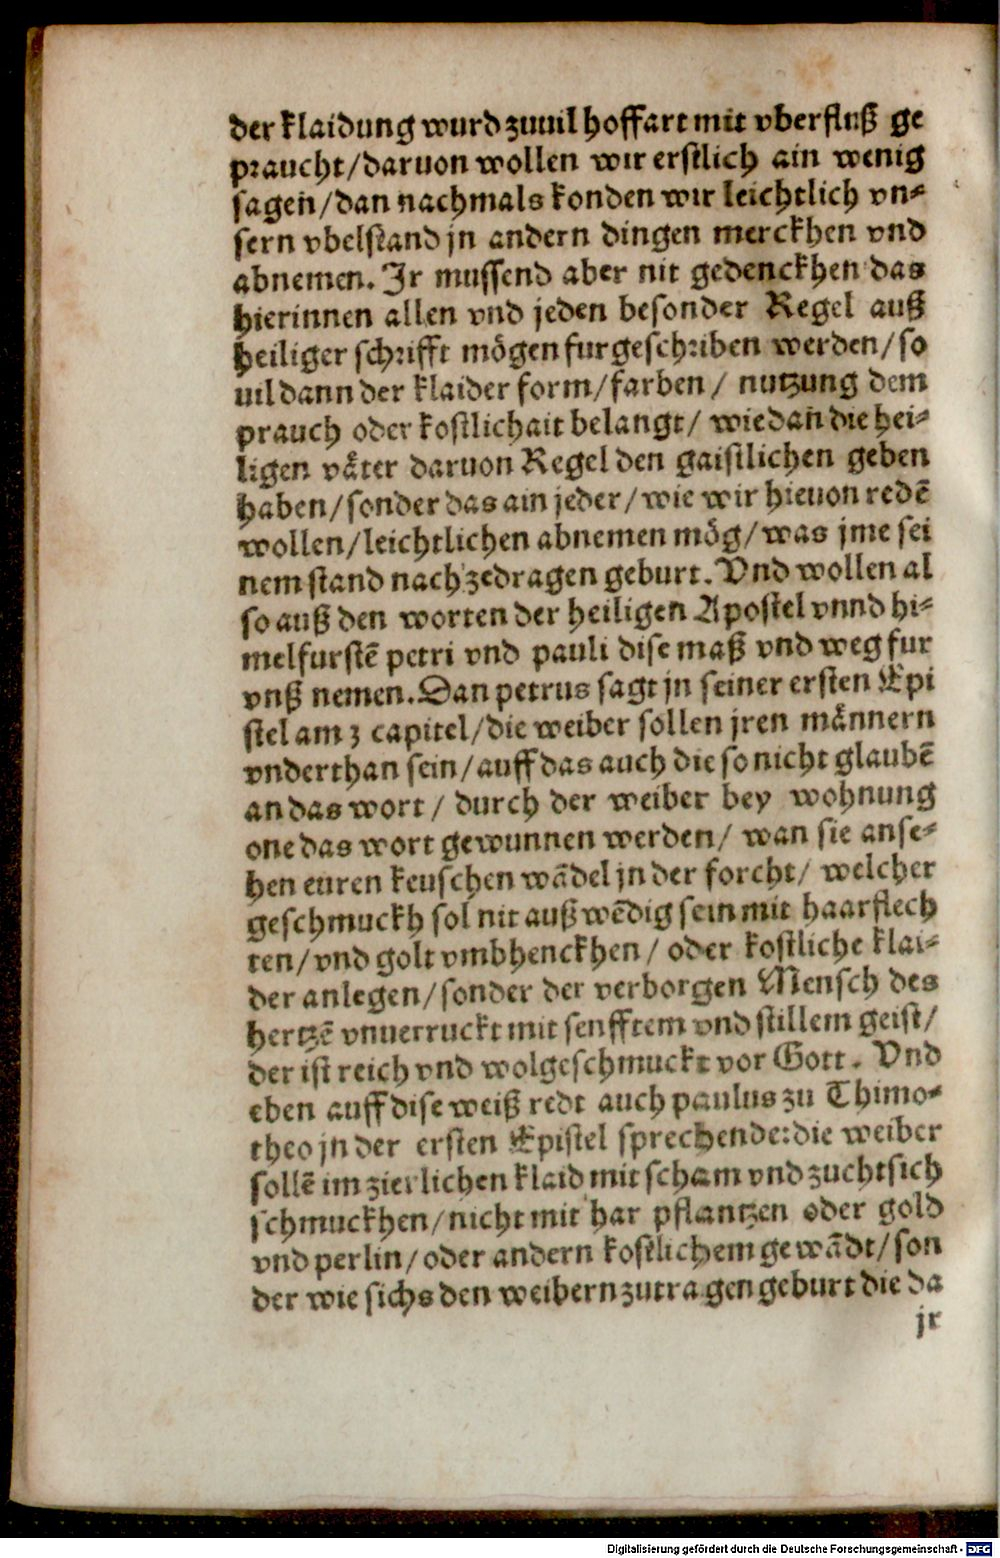 der klaidung wurd zuuil hoffart mit vberfluß ge
praucht/daruon wollen wir erstlich ain wenig
sagen/dan nachmals konden wir leichtlich vn⸗
sern vbelstand jn andern dingen merckhen vnd
abnemen. Jr mussend aber nit gedenckhen das
hierinnen allen vnd jeden besonder Regel auß
heiliger schrifft mögen furgeschriben werden/so
uil dann der klaider form/farben/ nutzung dem
prauch oder kostlichait belangt/ wie dan̄ die hei⸗
ligen våter daruon Regel den gaistlichen geben
haben/sonder das ain jeder/wie wir hieuon redē
wollen/leichtlichen abnemen mög/was jme sei
nem stand nach zedragen geburt. Vnd wollen al
so auß den worten der heiligen Apostel vnnd hi⸗
melfurstē petri vnd pauli dise maß vnd weg fur
vnß nemen. Dan petrus sagt jn seiner ersten Epi
stel am 3 capitel/die weiber sollen jren männern
vnderthan sein/auff das auch die so nicht glaubē
an das wort/ durch der weiber bey wohnung
one das wort gewunnen werden/ wan sie anse⸗
hen euren keuschen wādel jn der forcht/ welcher
geschmuckh sol nit außwēdig sein mit haarflech
ten/vnd golt vmbhenckhen/ oder kostliche klai⸗
der anlegen/sonder der verborgen Mensch des
hertzē vnuerruckt mit senfftem vnd stillem geist/
der ist reich vnd wolgeschmuckt vor Gott. Vnd
eben auff dise weiß redt auch paulus zu Thimo⸗
theo jn der ersten Epistel sprechende:die weiber
sollē im zierlichen klaid mit scham vnd zucht sich
schmuckhen/nicht mit har pflantzen oder gold
vnd perlin/oder andern kostlichem gewādt/son
der wie sichs den weibern zutragen geburt die da
jr
Digitalisierung gefördert durch die Deutsche Forschungsgemeinschaft - DFG